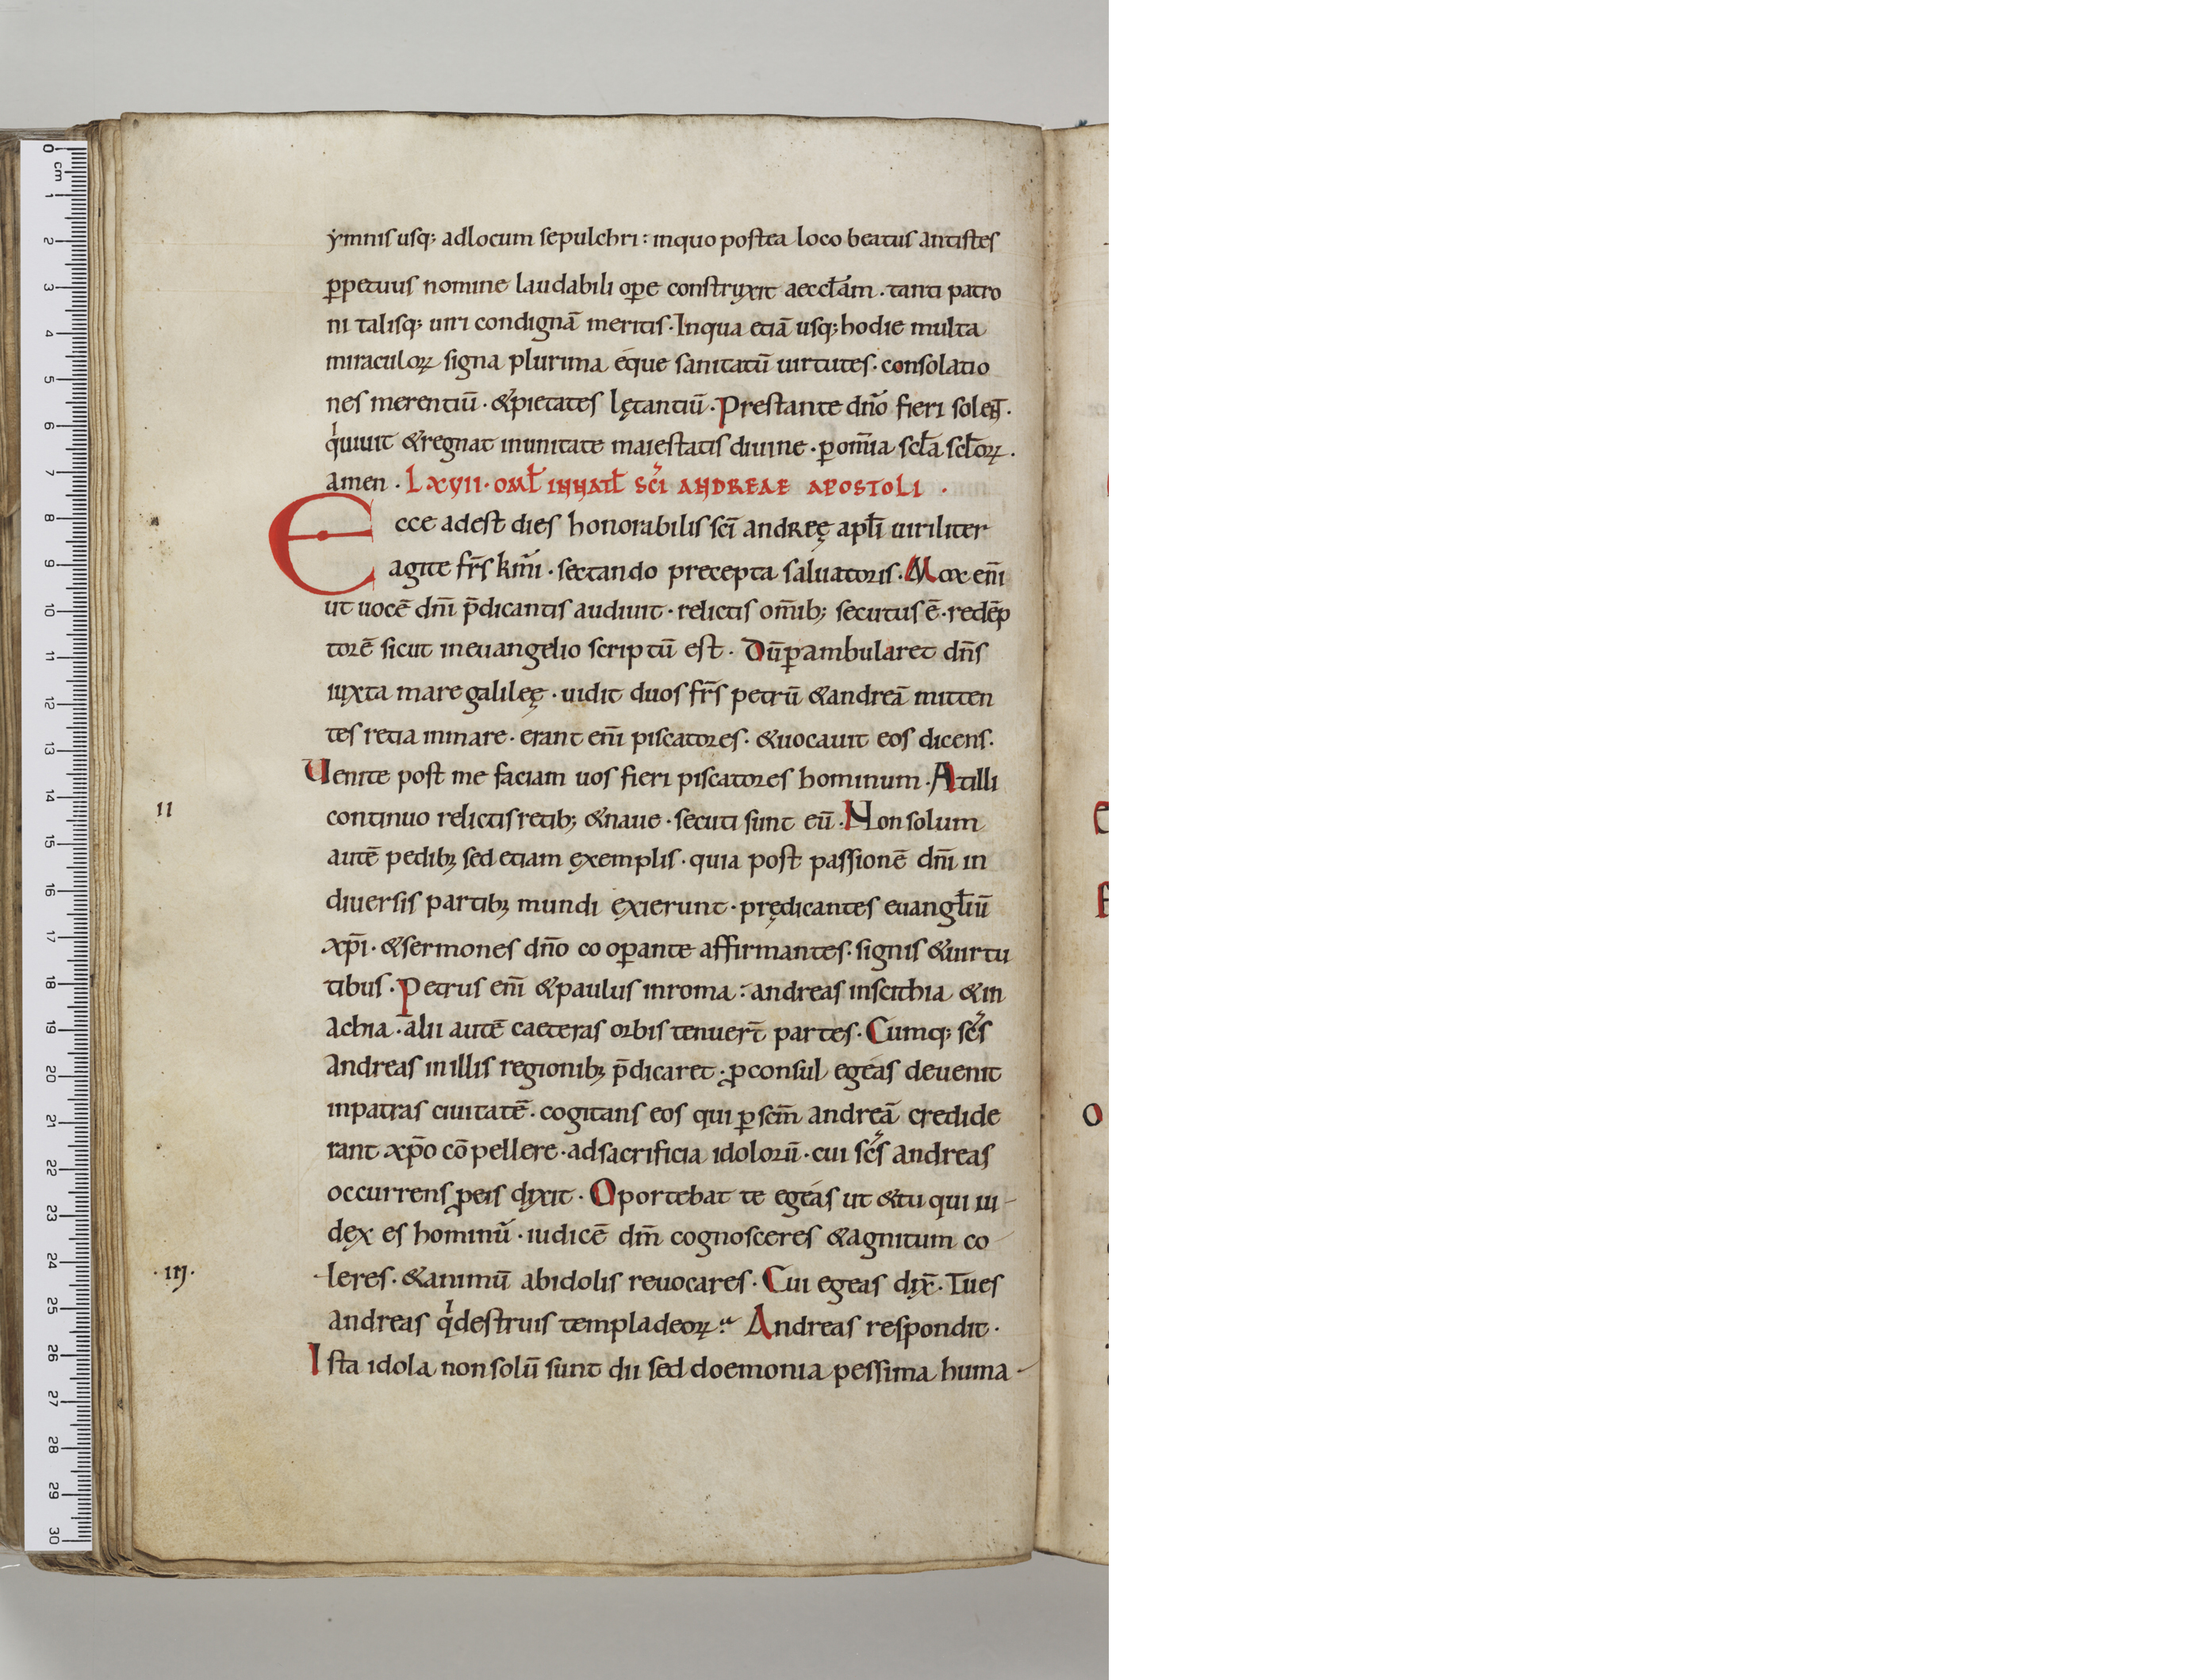 ẏmnis usq; adlocum sepulchri : inquo postea loco beatus antistes
ꝑpetuus nomine laudabili oꝑe construxit aeccłam . tanti patro
ni talisq; uiri condignā meritis . Inqua etiā usq; hodie multa
miraculoꝝ signa plurima éque sanitatū uirtutes . consolatio
nes merentiū . &pietates lętantiū . Prestante dño fieri solent .
qͥuiuit &regnat inunitate maiestatis diuine . ꝑ om̄ia scła scłoꝝ .
amen . LXVII . OMŁ INNATŁ SC̄I ANDREAE APOSTOLI .
Ecce adest dies honorabilis sc̄i andreę apłi uiriliter
agite fr̄s km̄i . sectando precepta saluatoris . Mox eni̅
ut uocē dn̄i p̄dicantis audiuit . relictis om̄ib; secutus ē . redēp
torē sicut ineuangelio scriptū est . Dū ꝑambularet dn̄s
iuxta mare galileę . uidit duos fr̄s petrū &andreā mitten
tes retia inmare . erant eni̅ piscatores . &uocauit eos dicens .
Uenite post me faciam uos fieri piscatores hominum . At illi
II
continuo relictis retib; &naue . secuti sunt eū . Non solum
autē pedibꝫ sed etiam exemplis . quia post passionē dn̄i in
diuersis partibꝫ mundi exierunt . prędicantes euangłiū
xp̄i . &sermones dn̄o co oꝑante affirmantes . signis &uirtu
tibus . Petrus eni̅ &paulus inroma : andreas inscithia &in
achia . alii autē caeteras orbis tenuer̄t partes . Cumq; sc̄s
andreas inillis regionibꝫ p̄dicaret . ꝓconsul egéas deuenit
inpatras ciuitatē . cogitans eos qui ꝑ scm̄ andreā credide
rant xp̄o cōpellere . adsacrificia idolorū . cui sc̄s andreas
occurrens ꝓeis dixit . Oportebat te egéas ut &tu qui iu-
dex es hominū . iudicē dm̄ cognosceres &agnitum co-
. III .
-leres . &animū abidolis reuocares . Cui egeas dix̄ . Tu es
andreas qͥ destruis templa deoꝝ ? Andreas respondit .
Ista idola non solū sunt dii sed doemonia pessima huma-